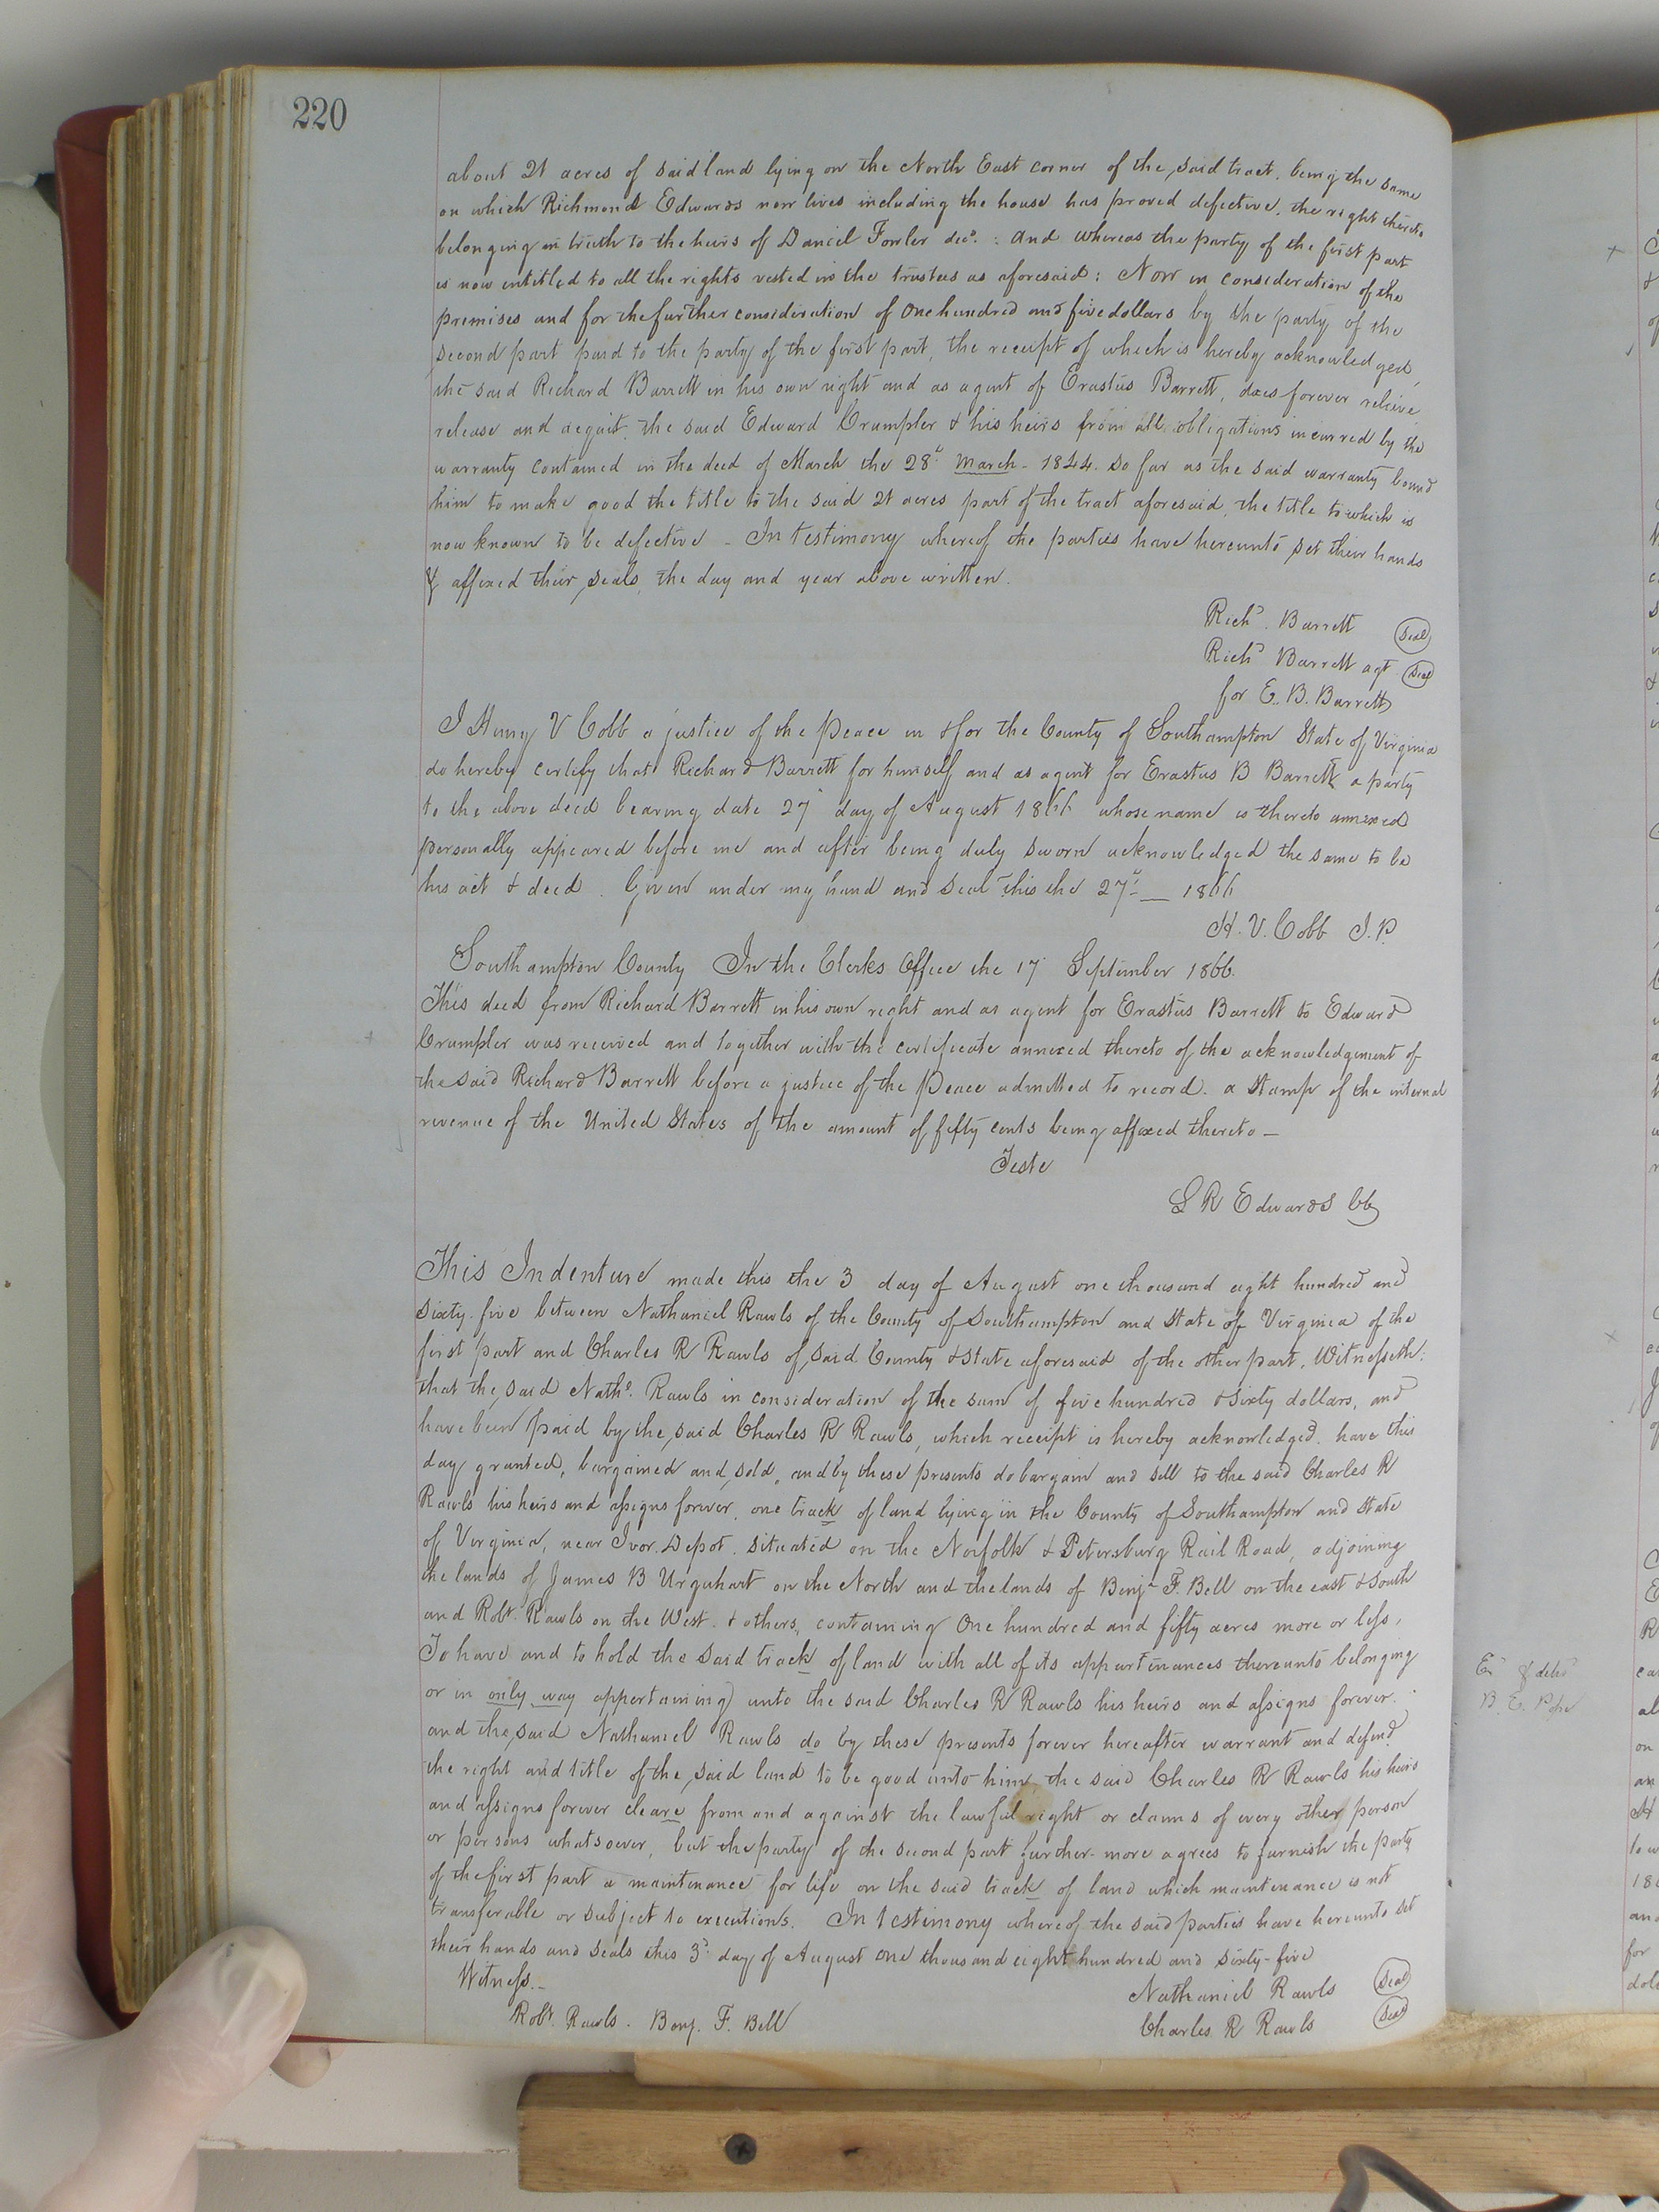 220
about 21 acres of said land lying on the North East corner of the said tract. being the same
on which Richmond Edwards now lives including the house has proved defective, the right thereto
belonging in truth to the heirs of Daniel Fowler decd. : and whereas the party of the first part
is now entitled to all the rights vested in the trustees as aforesaid : Now in consideration of the
premises and for the further consideration of One hundred and five dollars by the party of the
second part paid to the party of the first part, the receipt of which is hereby acknowledged,
the said Richard Barrett in his own right and as agent of Erastus Barrett, does forever relieve
release and acquit, the said Edward Crumpler & his heirs from all obligations incurred by the
warranty contained in the deed of March the 28th March - 1844. so far as the said warranty bound
him to make good the title to the said 21 acres part of the tract aforesaid, the title to which is
now known to be defective - In testimony whereof the parties have hereunto set their hands
& affixed their seals, the day and year above written.
Richd. Barrett Seal
Richd Barrett agt Seal
for E. B. Barrett
I Henry V Cobb a justice of the Peace in & for the County of Southampton State of Virginia
do hereby certify that Richard Barrett for himself and as agent for Erastus B Barrett a party
to the above deed bearing date 27 day of August 1866 whose name is thereto annexed
personally appeared before me and after being duly sworn acknowledged the same to be
his act & deed. Given under my hand and seal this the 27th __ 1866
H. V. Cobb J. P.
Southampton County In the Clerks Office the 17 September 1866.
This deed from Richard Barrett in his own right and as agent for Erastus Barrett to Edward
Crumpler was received and together with the certificate annexed thereto of the acknowledgement of
the said Richard Barrett before a justice of the Peace admitted to record. a Stamp of the internal
revenue of the United States of the amount of fifty cents being affixed thereto -
Teste
L R Edwards Clk
This Indenture made this the 3 day of August one thousand eight hundred and
sixty-five between Nathaniel Rawls of the County of Southampton and State of Virginia of the
first part and Charles R Rawls of said County & State aforesaid of the other part, Witnesseth:
that the said Nathl. Rawls in consideration of the sum of five hundred & sixty dollars, and
have been paid by the said Charles R Rawls, which receipt is hereby acknowledged. have this
day granted, bargained and sold, and by these presents do bargain and sell to the said Charles R
Rawls his heirs and assigns forever, one track of land lying in the County of Southampton and State
of Virginia, near Ivor Depot. situated on the Norfolk & Petersburg Rail Road, adjoining
the lands of James B Urquhart on the North and the lands of Benjn F. Bell on the east & South
and Robt. Rawls on the West. & others, containing One hundred and fifty acres more or less,
To have and to hold the said track of land with all of its appurtinances thereunto belonging
or in only way appertaining) unto the said Charles R Rawls his heirs and assigns forever.
and the said Nathaniel Rawls do by these presents forever hereafter warrant and defend
the right and title of the said land to be good unto him the said Charles R Rawls his heirs
and assigns forever cleare from and against the lawful right or claims of every other person
or persons whatsoever, but the party of the second part further-more agrees to furnish the party
of the first part a maintenance for life on the said track of land which maintenance is not
transferable or subject to executions. In testimony whereof the said parties have hereunto set
their hands and seals this 3d. day of August one thousand eight hundred and sixty-five
Witness.-
Nathaniel Rawls Seal
Robt. Rawls. Benj. F. Bell
Charles R Rawls Seal